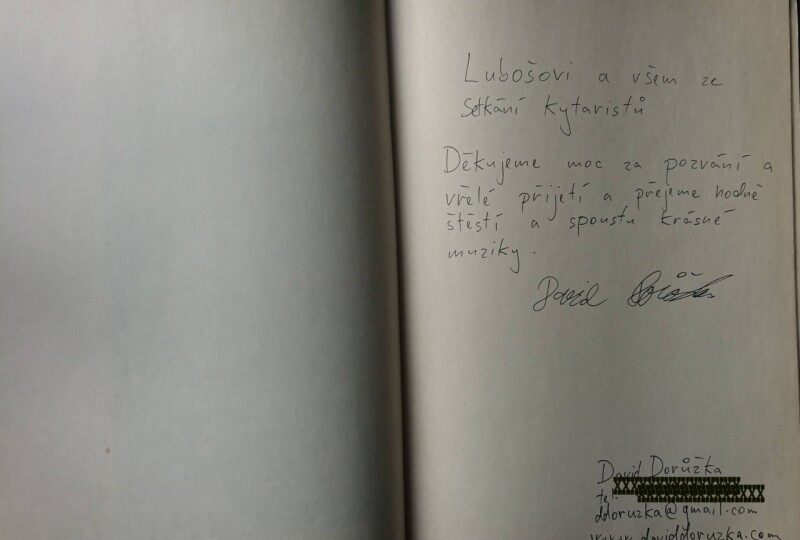 Lubošovi a všem ze
Setkání kytaristů
Děkujeme moc za pozvání a
vřelé přijetí a přejeme hodně
štěstí a spoustu krásné
muziky.
David Dorůžka
David Dorůžka
tel.
ddoruzka@gmail.com
www.daviddoruzka.com